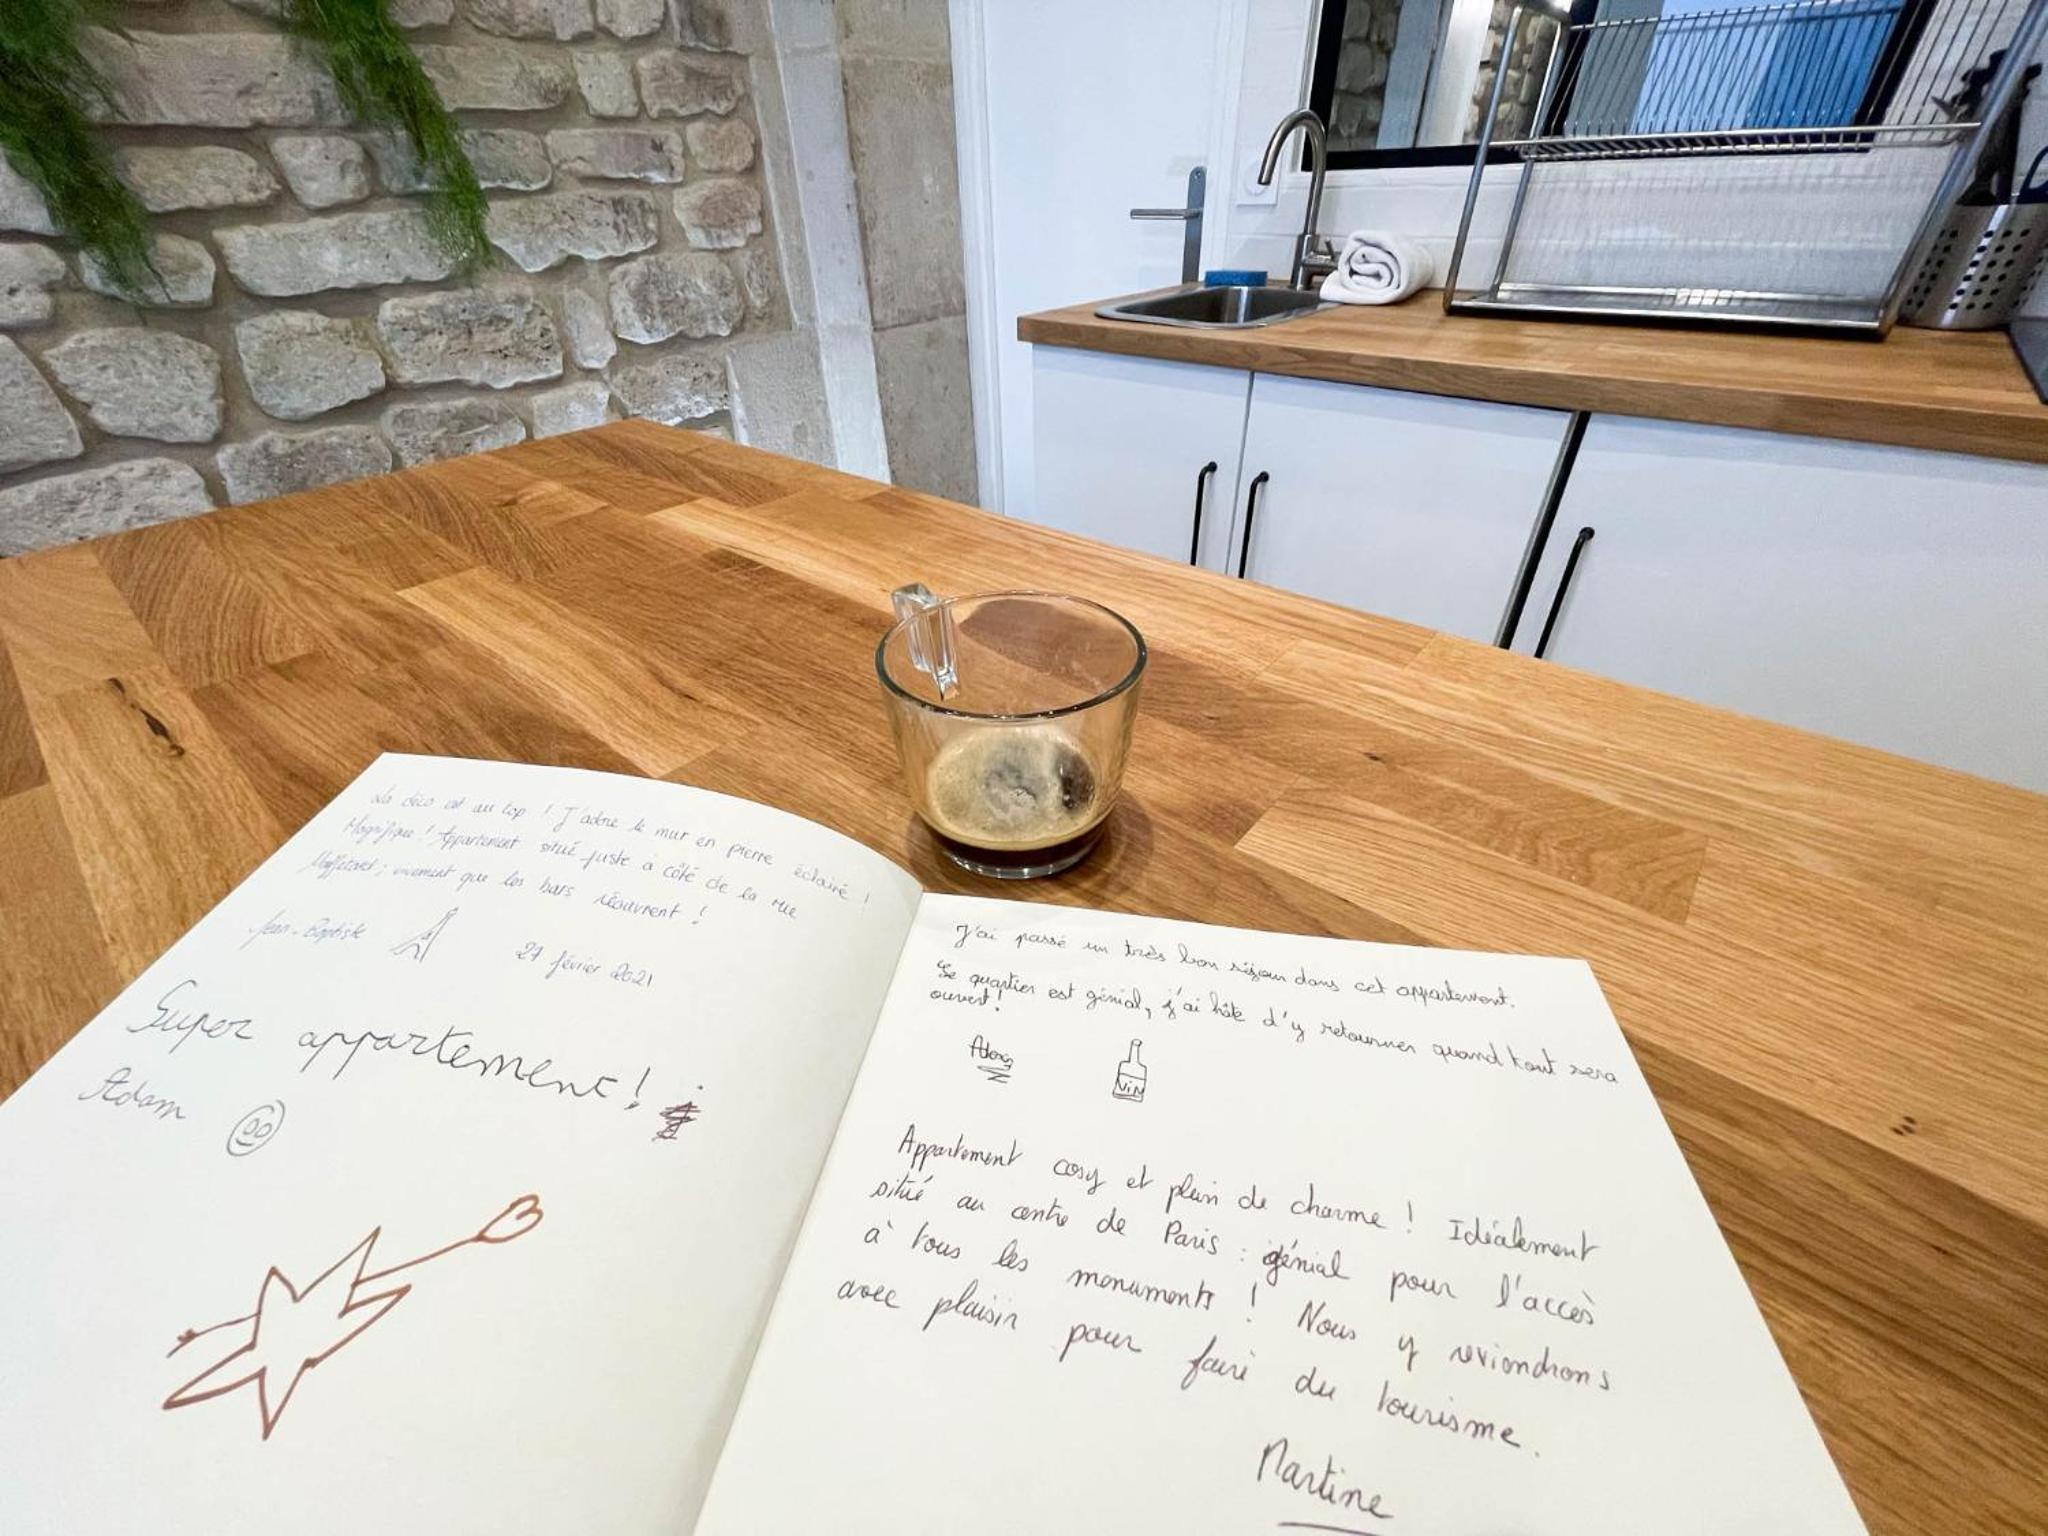 La déco est au top ! J'adore le mur en pierre éclairé !
Magnifique ! Appartement situé juste à côté de la rue
Mouffetard ; vivement que les bars réouvrent !
Jean-Baptiste
27 février 2021
Super appartement !
Adam
J'ai passé un très bon séjour dans cet appartement.
Le quartier est génial, j'ai hâte d'y retourner quand tout sera
ouvert !
VIN
Appartement cosy et plein de charme ! Idéalement
situé au centre de Paris : génial pour l'accès
à tous les monuments ! Nous y reviendrons
avec plaisir pour faire du tourisme.
Martine